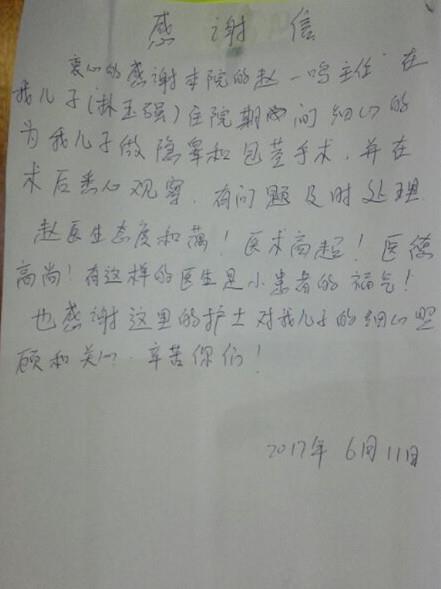 感谢信
衷心的感谢本院的赵一鸣主任在
我儿子(林玉强)住院期间细心的
为我儿子做隐睾和包茎手术,并在
术后悉心观察,有问题及时处理
赵医生态度和蔼!医术高超!医德
高尚!有这样的医生是小患者的福气!
也感谢这里的护士对我儿子的细心照
顾和关心.辛苦你们!
2017年6月11日